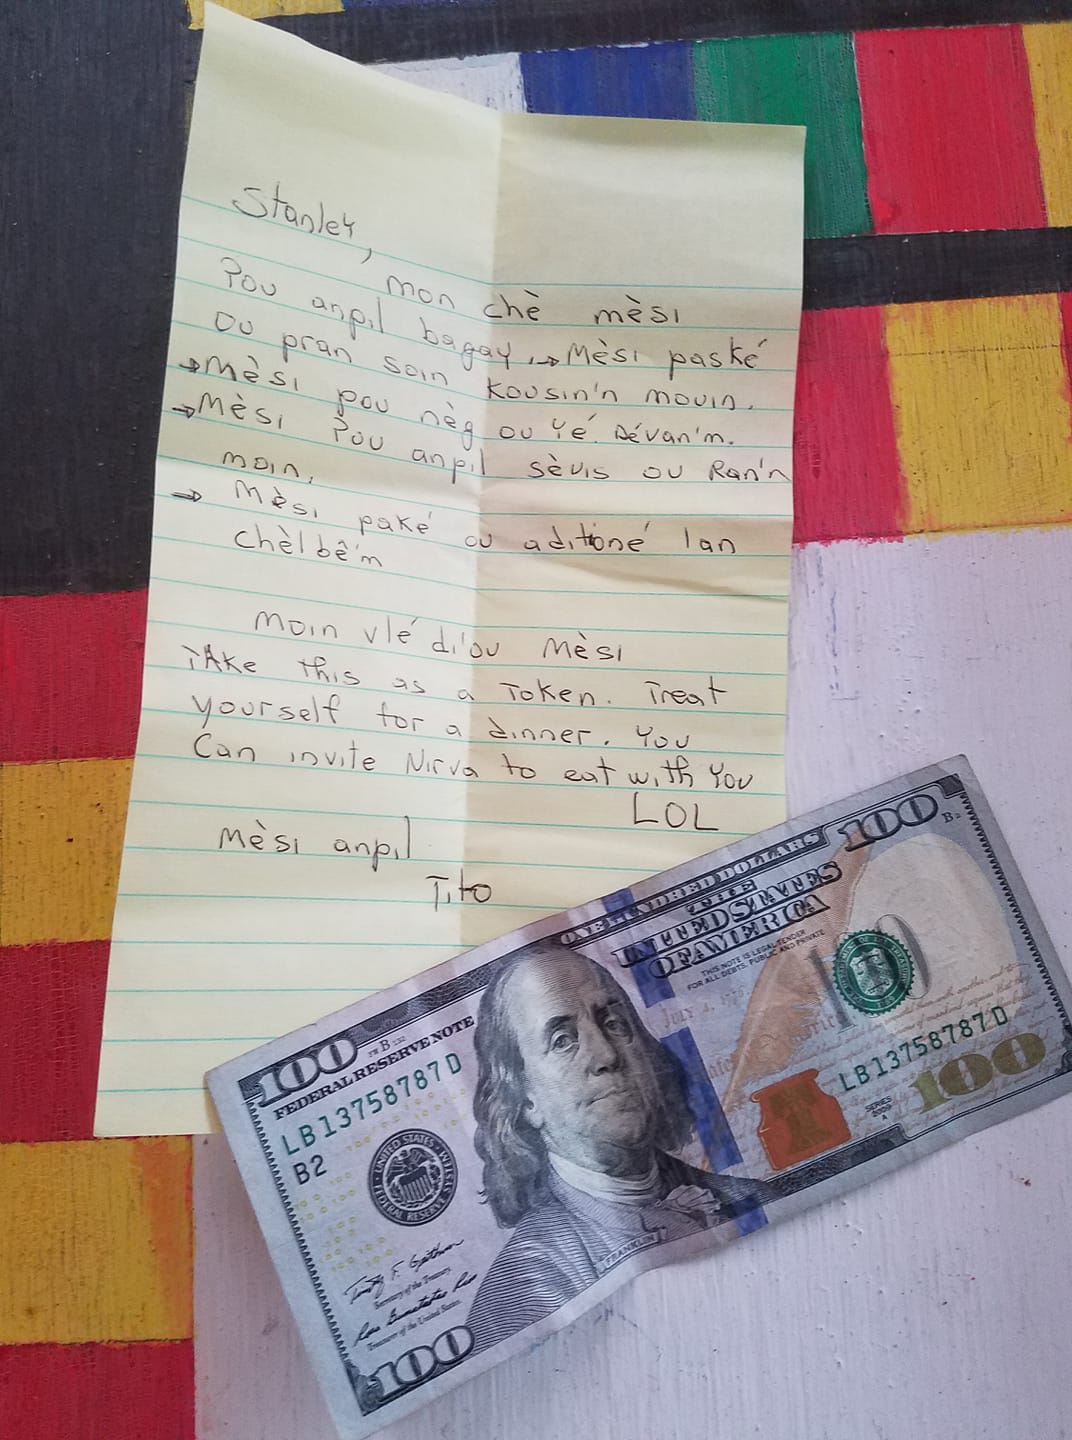 Stanley,
mon chè mèsi
Pou anpil bagay, → Mèsi paské
ou pran soin kousin'n mouin.
→ Mèsi pou nèg ou yé. Dévan'm.
→ Mèsi Pou anpil sèvis ou Ran'n
moin.
→ Mèsi paké ou aditioné lan
chèlbè'm
moin vlé di'ou mèsi
TAke this as a Token. Treat
yourself for a dinner. You
Can invite Nirva to eat with You
LOL
Mèsi anpil
Tito
100
FEDERAL RESERVE NOTE
LB13758787D
B2
UNITED STATES FEDERAL RESERVE SYSTEM
Secretary of the Treasury.
Treasurer of the United States.
100
FRANKLIN
ONE HUNDRED DOLLARS
THE
UNITED STATES
OF AMERICA
THIS NOTE IS LEGAL TENDER
FOR ALL DEBTS, PUBLIC AND PRIVATE
JULY 4, 1776
100
B2
100
LB13758787D
SERIES
2009
A
100